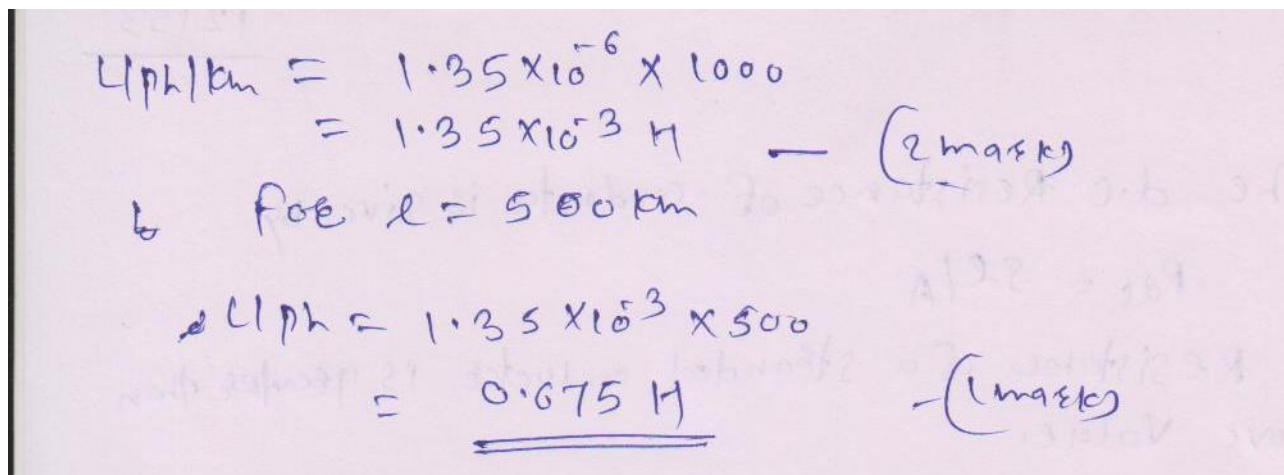 L/ph/km = 1.35 × 10⁻⁶ × 1000
= 1.35 × 10⁻³ H — (2 marks)
for l = 500 km
L/ph = 1.35 × 10⁻³ × 500
= 0.675 H — (1 marks)